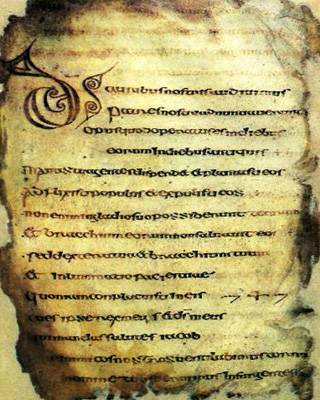 Ds auribus nostris audiuimus
Patres nostri adnuntiauerunt
opus quod operatus es in diebus
eorum in diebus antiquis
manus tua gentes disperdet & plantasti eos
adflixisti populos & expulisti eos
non enim in gladio suo possiderunt terram
& bracchium eorum non saluabit eos
sed dextera tua & bracchium tuum
& inluminatio
quoniam conplacuisti in eis
tu es ipse rex meus & ds meus
qui mandas salutes iacob
inimicos nostros uentilabimus cornu
nomine insurgentes